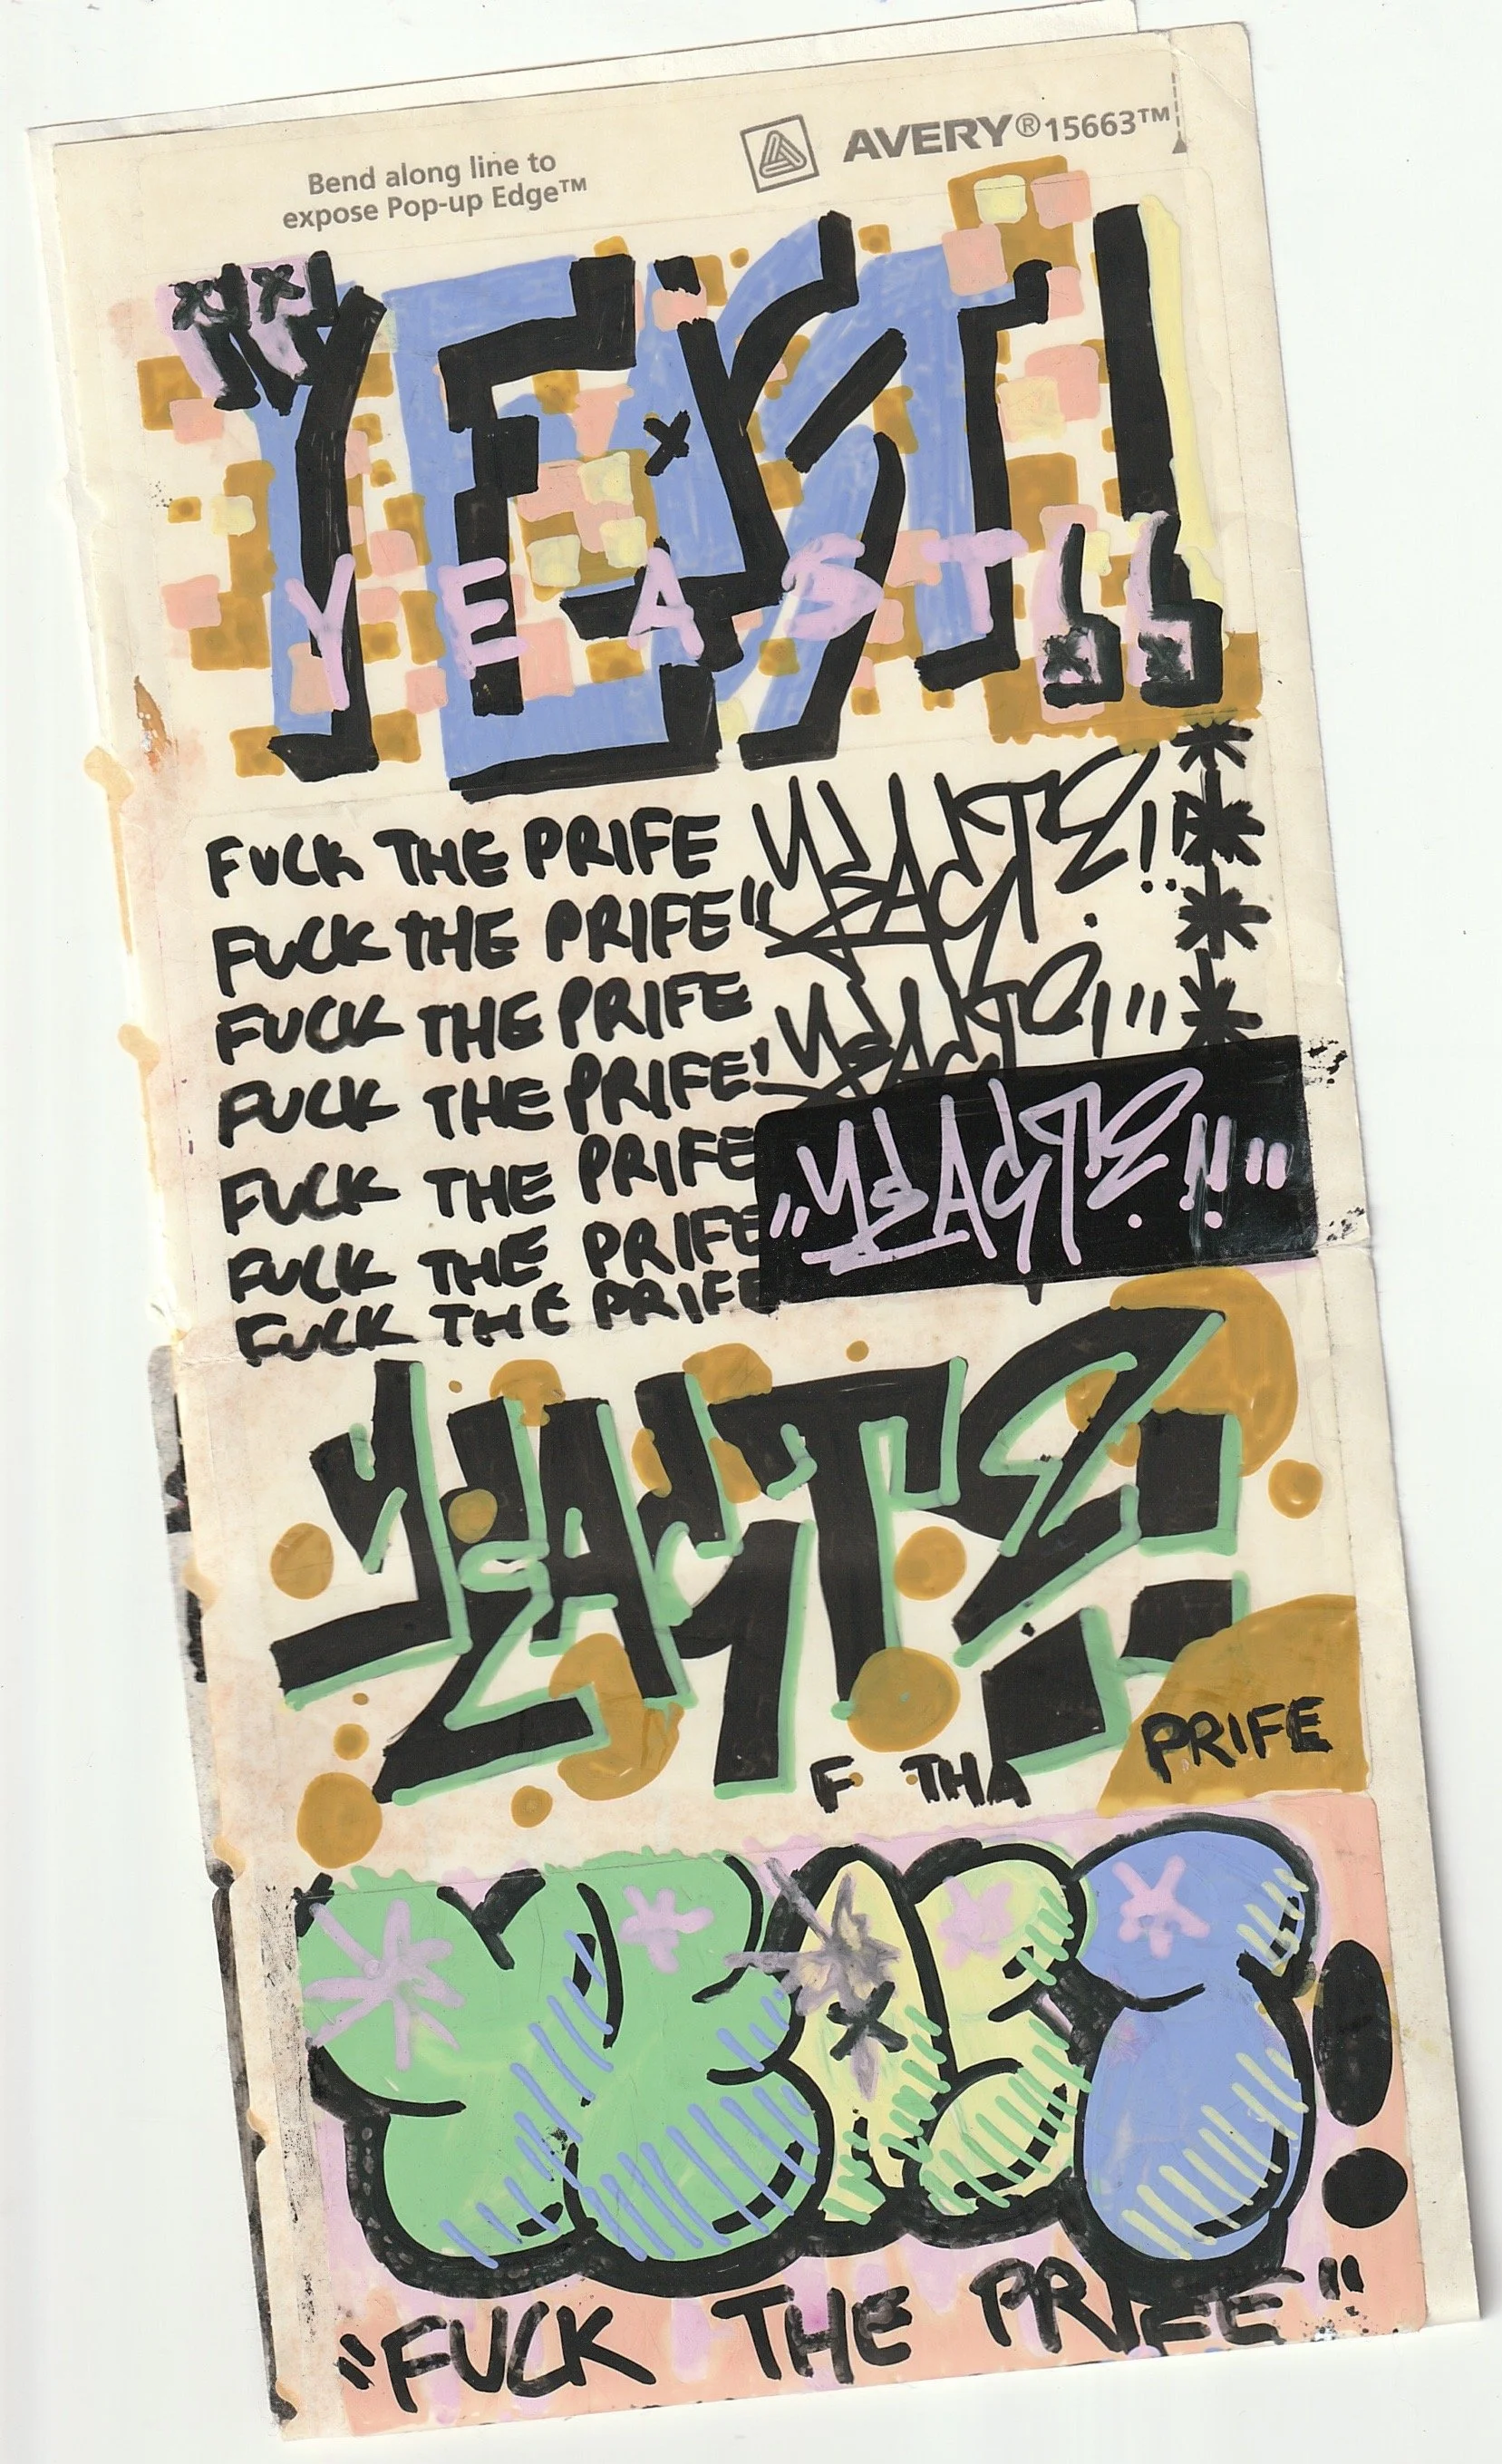 Bend along line to
expose Pop-up Edge™
AVERY® 15663™
"YEAST!"
YEAST
FUCK THE PRIFE
FUCK THE PRIFE
FUCK THE PRIFE
FUCK THE PRIFE
FUCK THE PRIFE
FUCK THE PRIFE
FUCK THE PRIFE
F THA
PRIFE
YEAST!
"FUCK THE PRIFE"